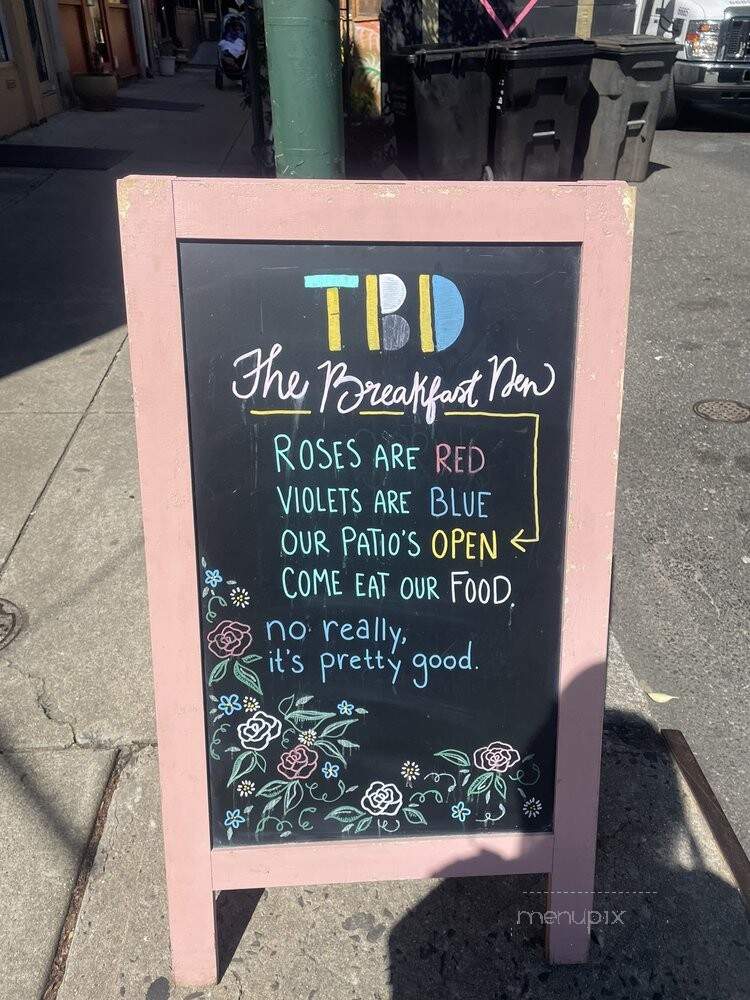 TBD
The Breakfast Den
ROSES ARE RED
VIOLETS ARE BLUE
OUR PATIO'S OPEN
COME EAT OUR FOOD.
no really,
it's pretty good.
menupix